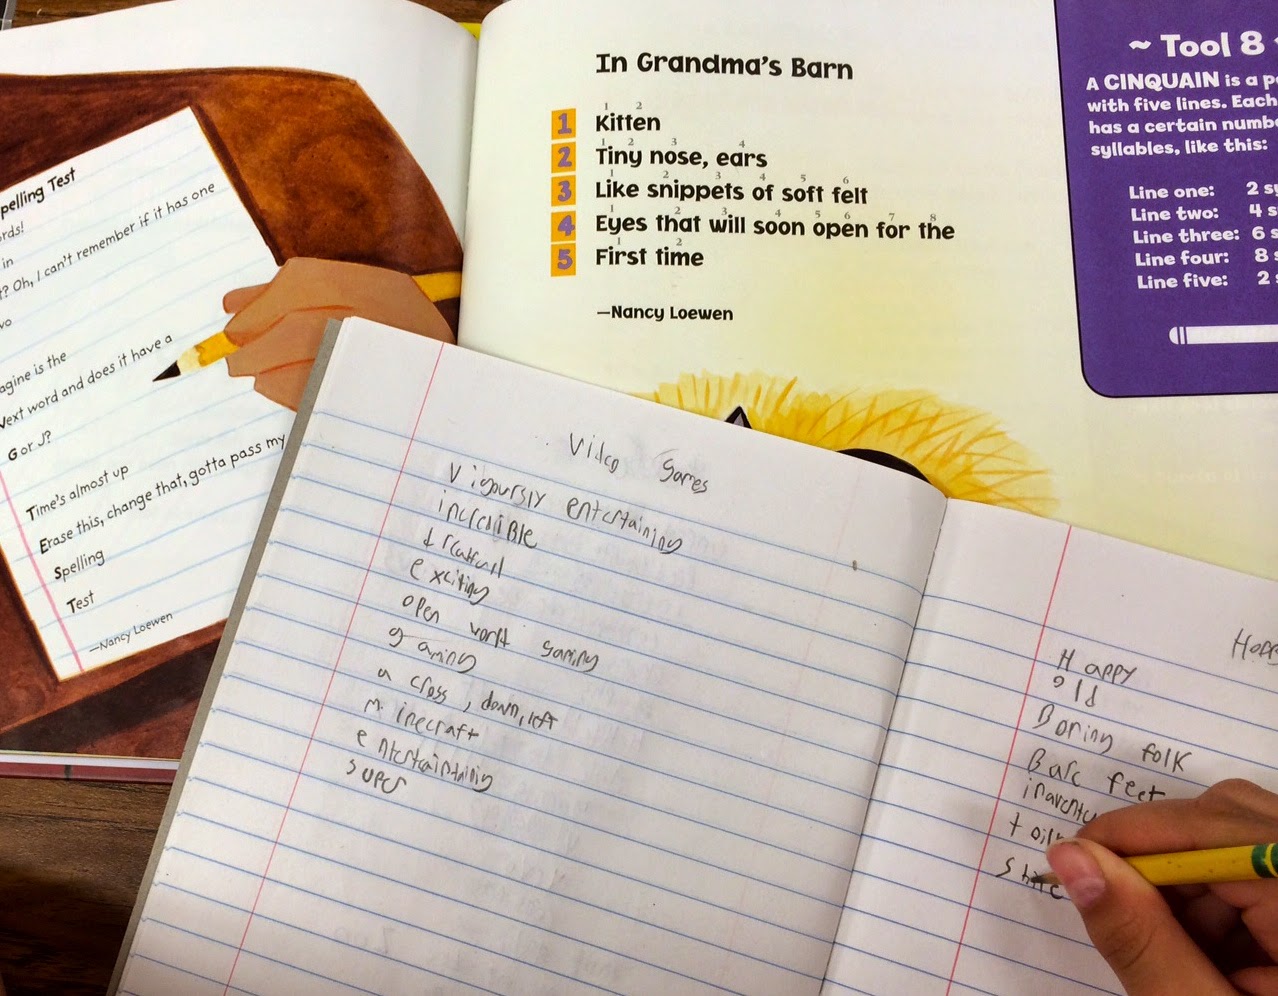 pelling Test
ords!
in
t? Oh, I can't remember if it has one
wo
agine is the
Next word and does it have a
G or J?
Time's almost up
Erase this, change that, gotta pass my
Spelling
Test
—Nancy Loewen
In Grandma's Barn
1 2
1 Kitten
1 2 3 4
2 Tiny nose, ears
1 2 3 4 5 6
3 Like snippets of soft felt
1 2 3 4 5 6 7 8
4 Eyes that will soon open for the
1 2
5 First time
—Nancy Loewen
~ Tool 8
A CINQUAIN is a po
with five lines. Each
has a certain numb
syllables, like this:
Line one: 2 sy
Line two: 4 s
Line three: 6 s
Line four: 8 s
Line five: 2 s
Video Games
Vigoursly entertaining
incredible
exciting
open gaming
gaming
a cross, down, left
minecraft
entertaintainig
super
Happy
old
Boring folk
Bare feet